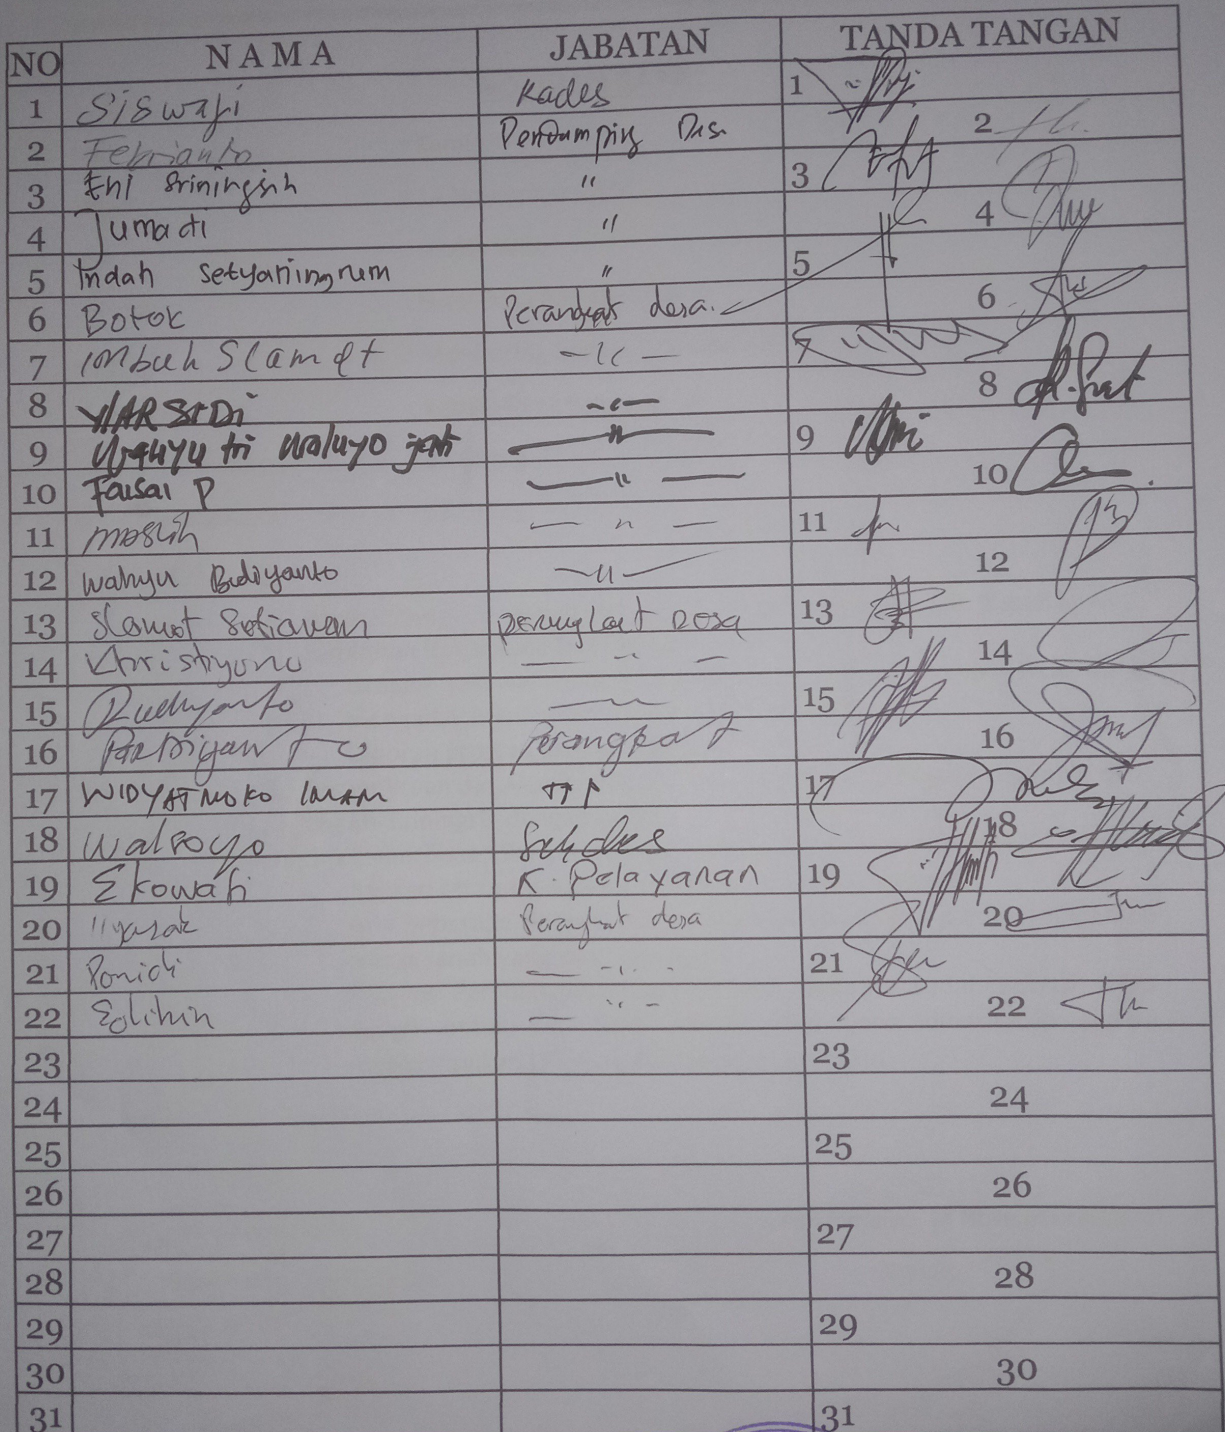 NO NAMA JABATAN TANDA TANGAN
1 Siswaji Kades 1
2 Febrianto Pendamping Desa 2
3 Eni Sriningsih " 3
4 Jumadi " 4
5 Indah Setyaningrum " 5
6 Botok Perangkat desa. 6
7 Slamet — " — 7
8 — " — 8
9 Wahyu tri Waluyo jati — " — 9
10 Faisal P — " — 10
11 — " — 11
12 Wahyu Budiyanto — " — 12
13 Slamet Setiawan perangkat Desa 13
14 Khristiyono — " — 14
15 Rudiyanto 15
16 Pardiyanto perangkat 16
17 WIDYATMOKO IMAM 17
18 Waluyo Sekdes 18
19 Ekowati K. Pelayanan 19
20 Perangkat desa 20
21 Ponidi — " — 21
22 Solihin — " — 22
23 23
24 24
25 25
26 26
27 27
28 28
29 29
30 30
31 31